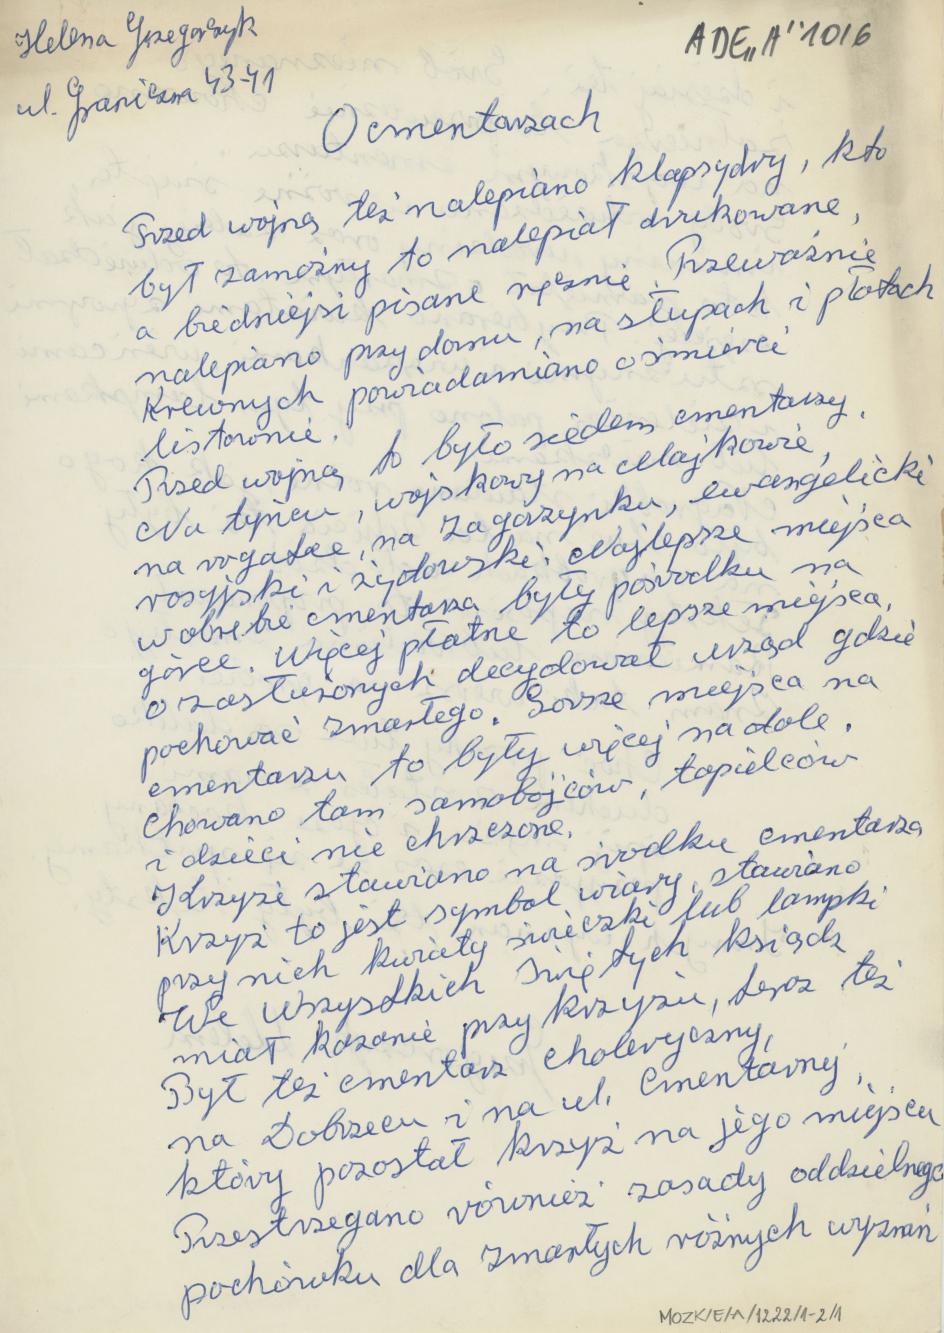 Helena Grzegorczyk
ul. Graniczna 43-41
ADE„A" 1016
O cmentarzach
Przed wojną też nalepiano klapsydry, kto
był zamożny to nalepiał drukowane,
a biedniejsi pisane ręcznie. Przeważnie
nalepiano przy domu, na słupach i płotach
Krewnych powiadamiano o śmierci
listownie.
Przed wojną to było siedem cmentarzy.
Na tyńcu, wojskowy na Majkowie,
na rogatce, na Zagorzynku, ewangelicki
rosyjski i żydowski. Najlepsze miejsca
w obrębie cmentarza były pośrodku na
górce. Więcej płatne to lepsze miejsca.
O zasłużonych decydował urząd gdzie
pochować zmarłego. Gorsze miejsca na
cmentarzu to były więcej na dole.
Chowano tam samobójców, topielców
i dzieci nie chrzczone.
Krzyże stawiano na środku cmentarza
Krzyż to jest symbol wiary, stawiano
przy nich kwiaty świeczki lub lampki
We Wszystkich Świętych ksiądz
miał kazanie przy krzyżu, teraz też
Był też cmentarz choleryczny,
na Dobrzecu i na ul. Cmentarnej,
który pozostał krzyż na jego miejscu
Przestrzegano również zasady oddzielnego
pochówku dla zmarłych różnych wyznań
MOZK/E/A/1222/1-2/1